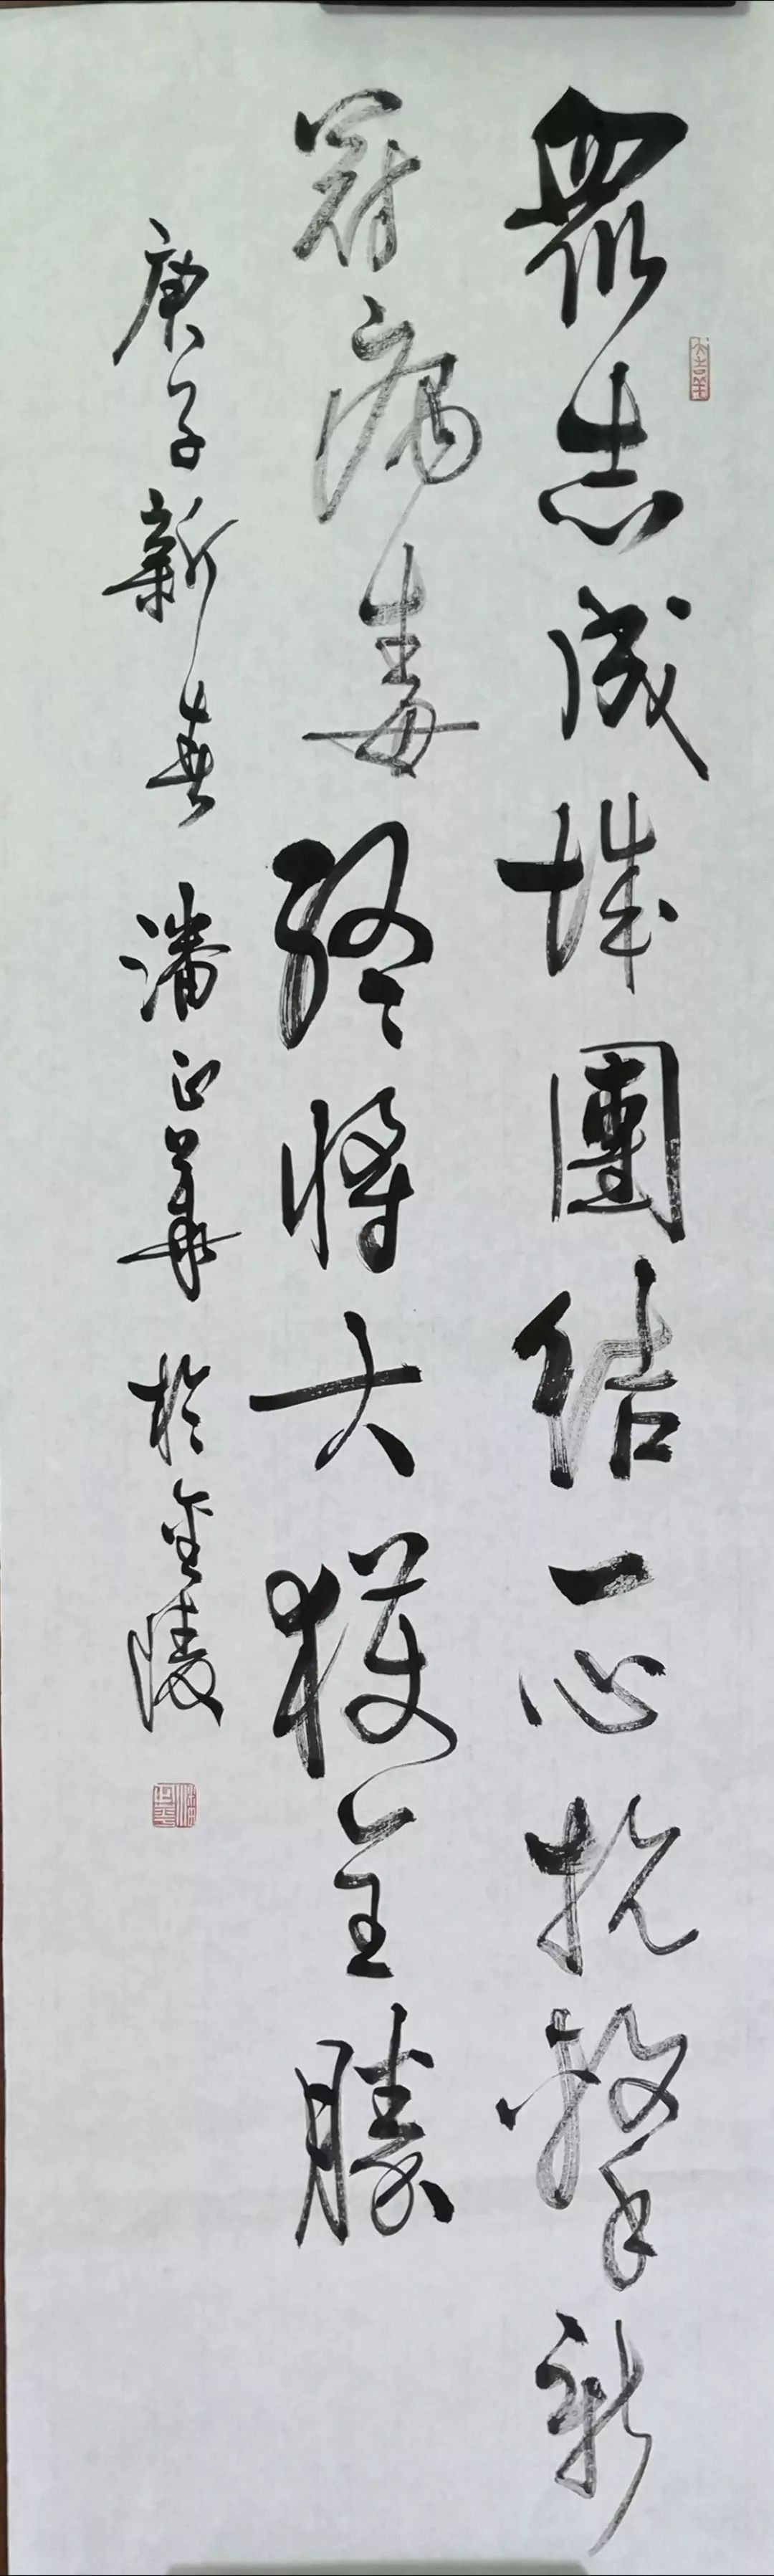 眾志成城團結一心抗擊新
冠病毒終將大獲全勝
庚子新春 潘正華 於金陵